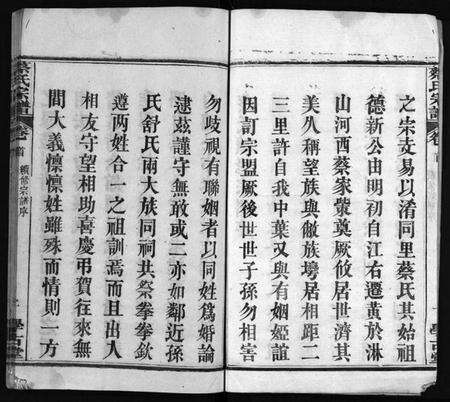 蔡氏宗譜
卷首
之宗支易以淆同里蔡氏其始祖
德新公由明初自江右遷黃於淋
山河西蔡家藂奠厥攸居世濟其
美人稱望族與敝族塆居相距二
三里許自我中葉又與有姻婭誼
因訂宗盟厥後世世子孫勿相害
勿歧視有聯姻者以同姓爲婚論
逮茲謹守無敢或二亦如鄰近孫
氏舒氏兩大族同祠共祭拳拳欽
遵兩姓合一之祖訓焉而且出入
相友守望相助喜慶弔賀往來無
間大義懍懍姓雖殊而情則一方
蔡氏宗譜
卷首
續修宗譜序